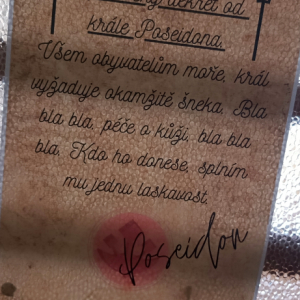 dekret od
krále Poseidona.
Všem obyvatelům moře, král
vyžaduje okamžitě šneka. Bla
bla bla, péče o kůži, bla bla
bla. Kdo ho donese, splním
mu jednu laskavost.
Poseidon